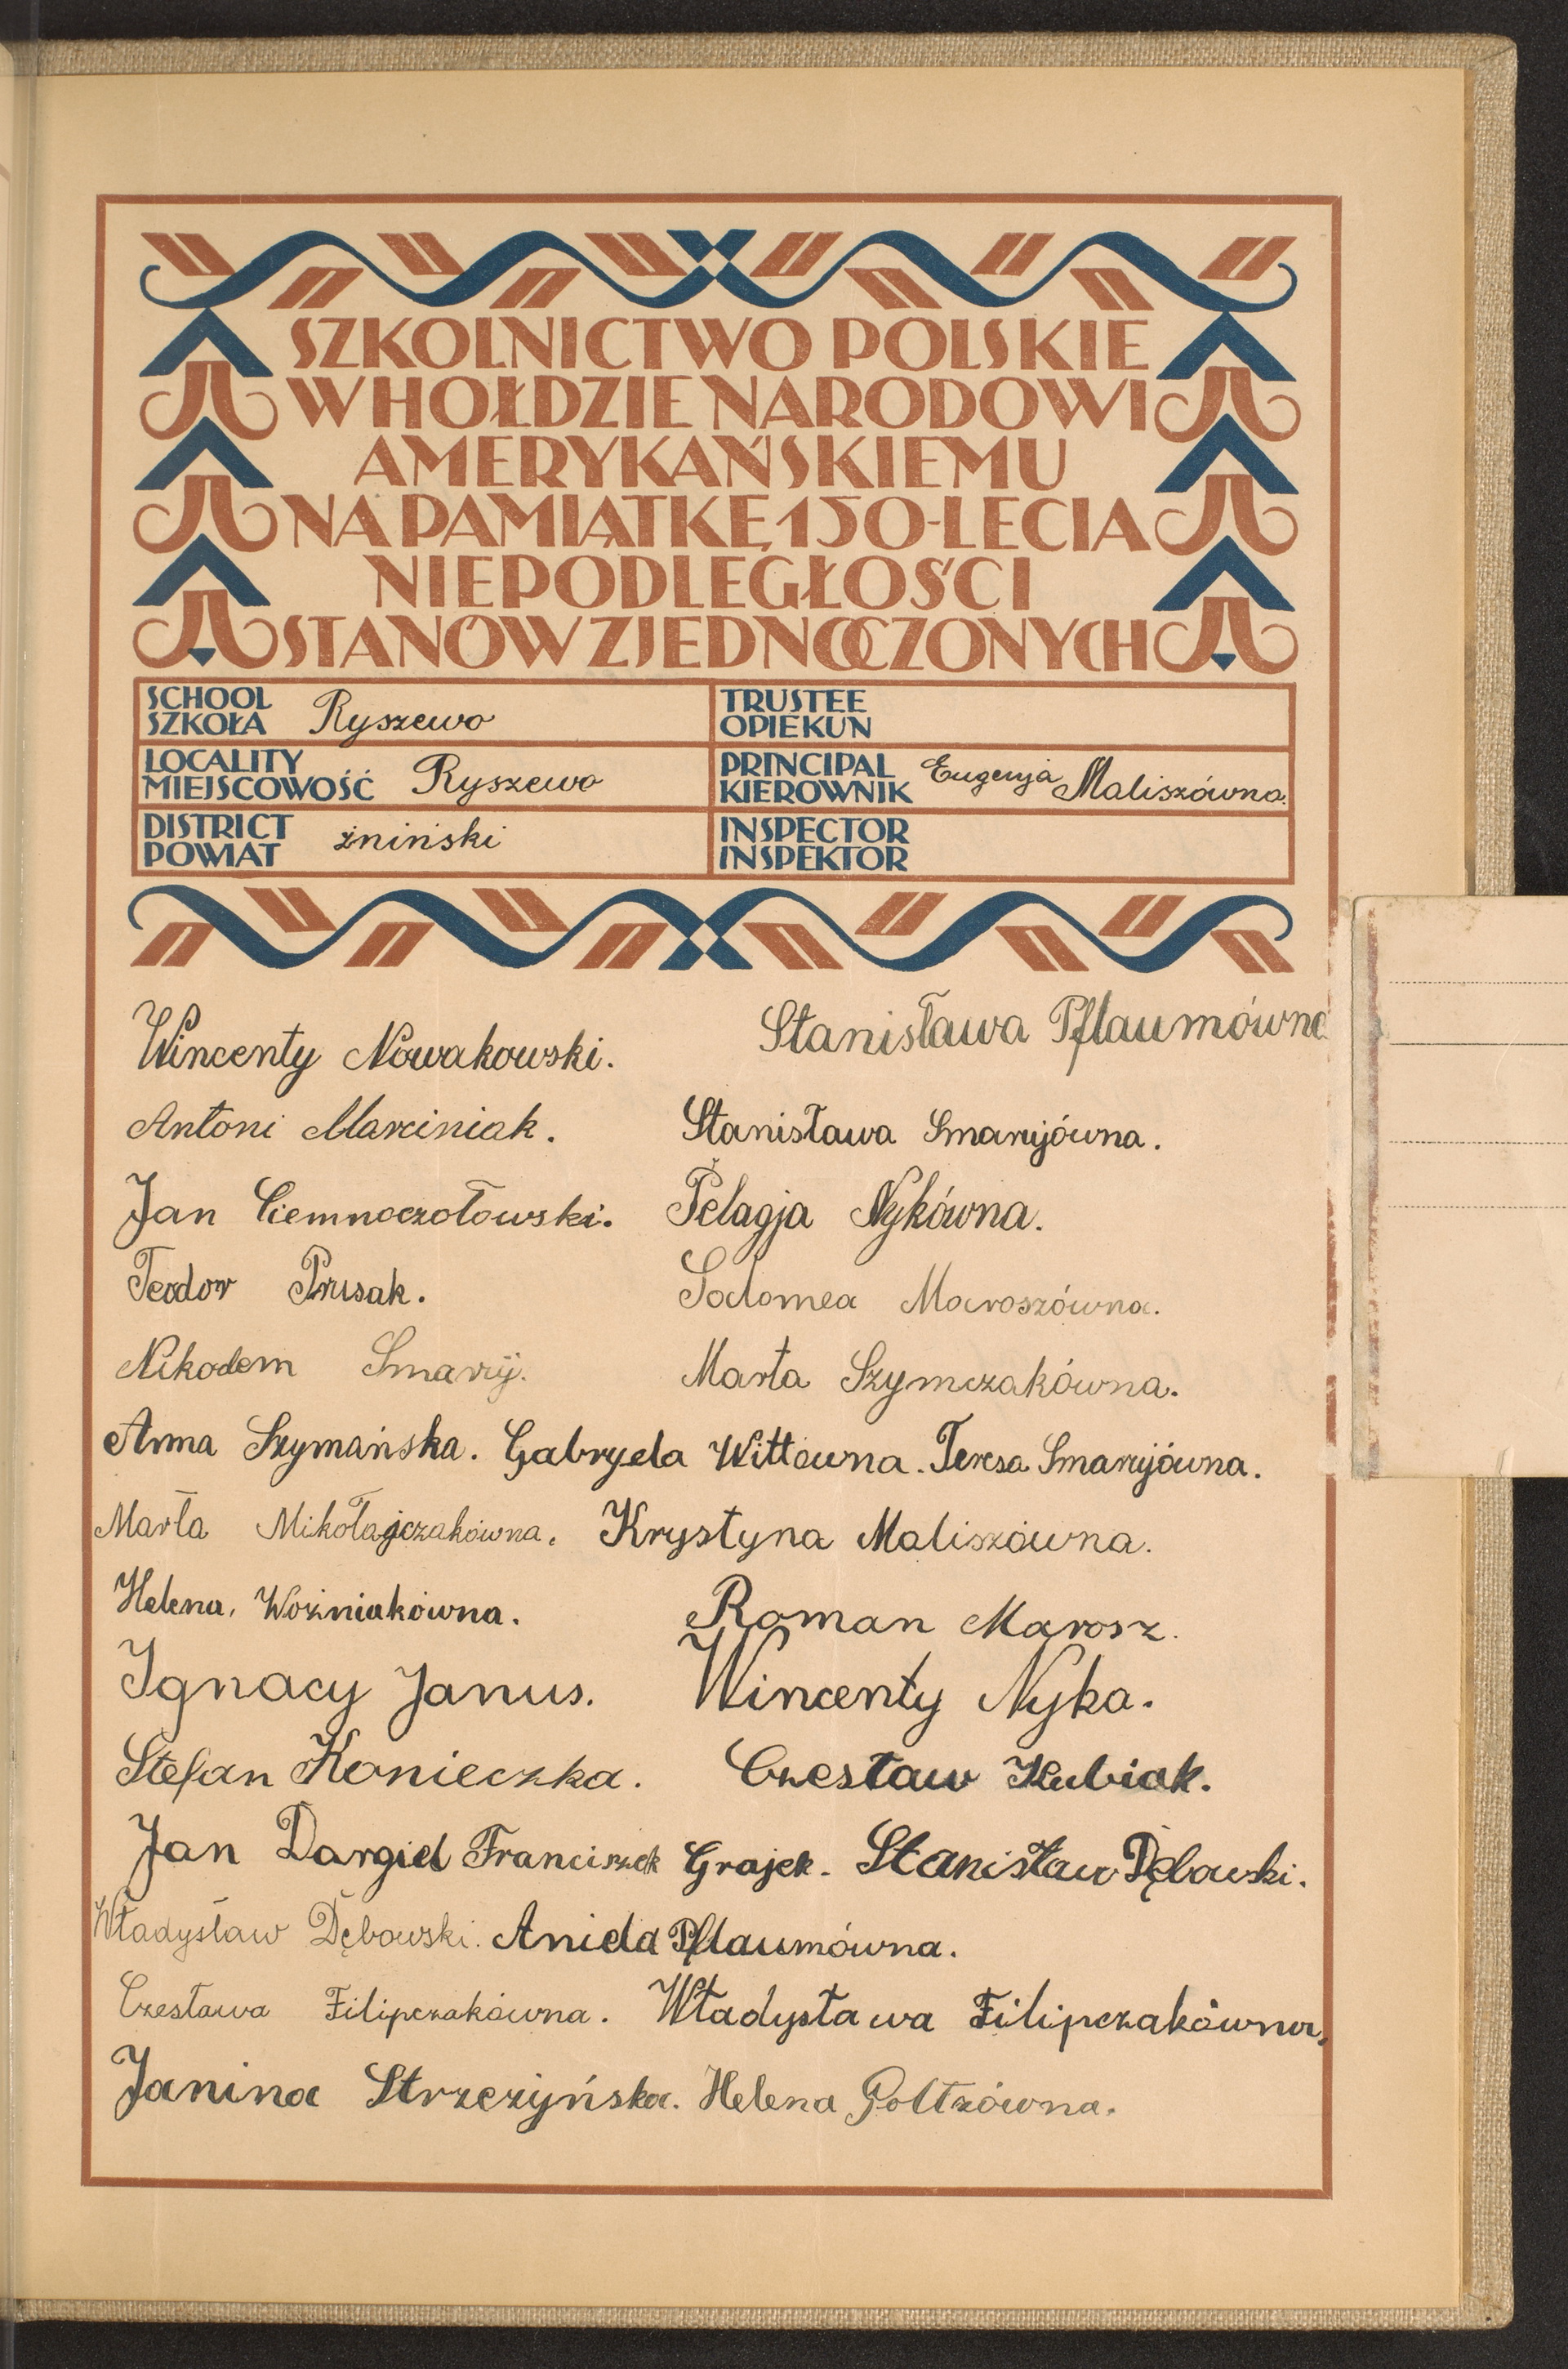 SZKOLNICTWO POLSKIE
W HOŁDZIE NARODOWI
AMERYKAŃSKIEMU
NA PAMIĄTKĘ 150-LECIA
NIEPODLEGŁOŚCI
STANÓW ZJEDNOCZONYCH
SCHOOL
SZKOŁA Ryszewo
TRUSTEE
OPIEKUN
LOCALITY
MIEJSCOWOŚĆ Ryszewo
PRINCIPAL
KIEROWNIK Eugenja Maliszówna.
DISTRICT
POWIAT żniński
INSPECTOR
INSPEKTOR
Wincenty Nowakowski. Stanisława Pflaumówna
Antoni Marciniak. Stanisława Smaryjówna.
Jan Ciemnoczołowski. Pelagja Nykówna.
Teodor Prusak. Salomea Maroszówna.
Nikodem Smaryj. Marta Szymczakówna.
Anna Szymańska. Gabryela Wittówna. Teresa Smaryjówna.
Marta Mikołajczakówna. Krystyna Maliszówna.
Helena, Woźniakówna. Roman Marosz.
Ignacy Janus. Wincenty Nyka.
Stefan Konieczka. Czesław Kubiak.
Jan Dargiel Franciszek Grajek. Stanisław Dębowski.
Władysław Dębowski. Aniela Pflaumówna.
Czesława Filipczakówna. Władysława Filipczakówna,
Janina Strzeżyńska. Helena Goltzówna.